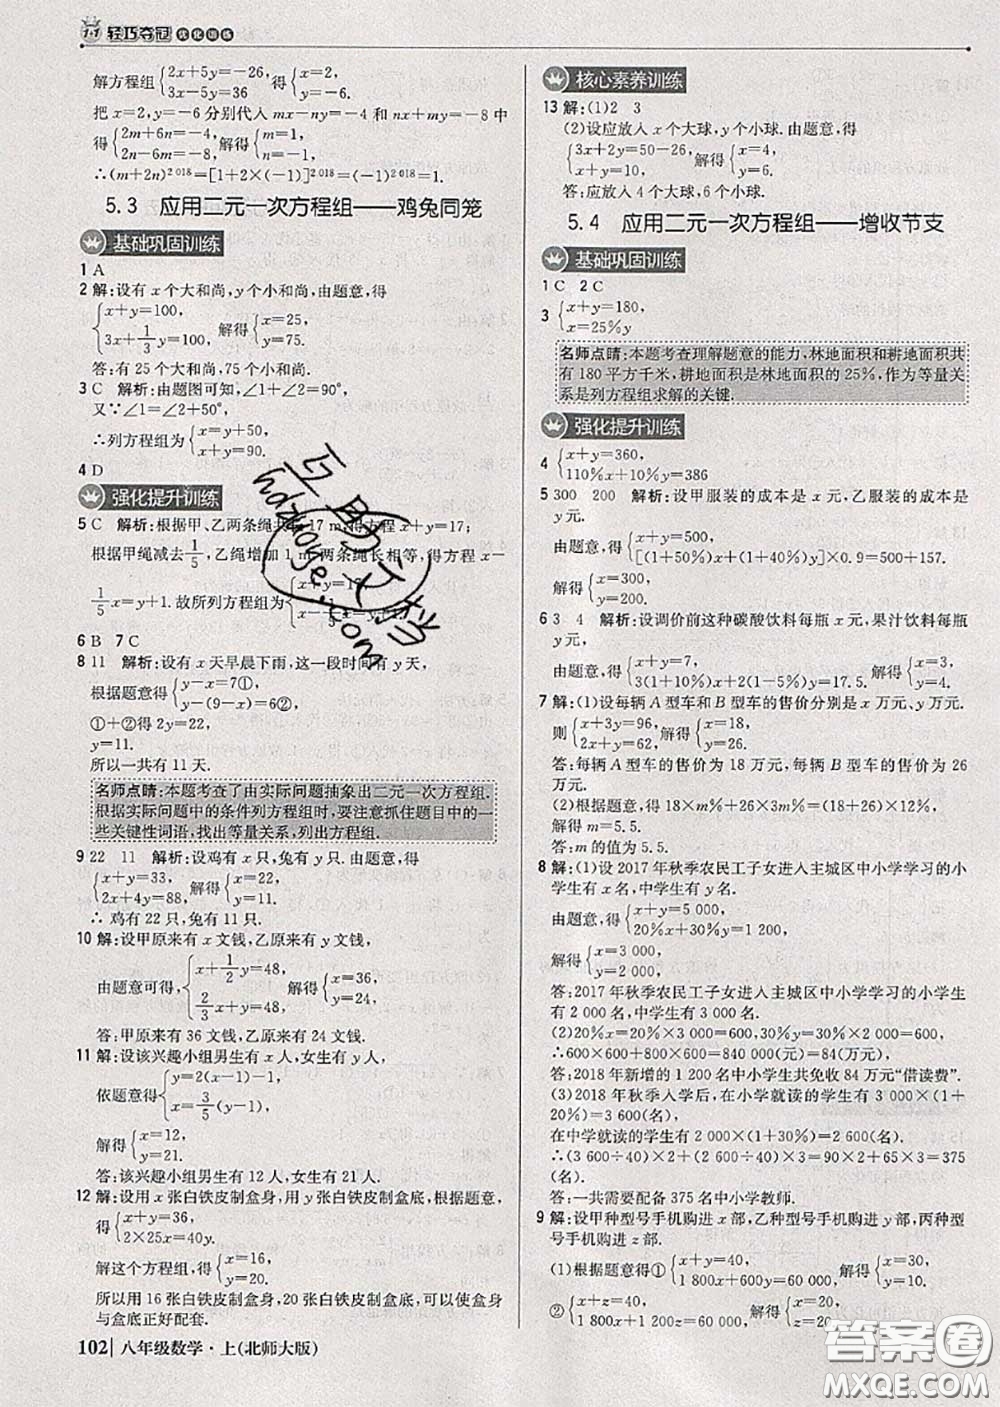 1+1 轻巧夺冠 优化训练
解方程组{2x+5y=-26, 3x-5y=36 得{x=2, y=-6.
把 x=2,y=-6 分别代入 mx-ny=-4 和 nx+my=-8 中
得{2m+6n=-4, 2n-6m=-8, 解得{m=1, n=-1.
∴(m+2n)^2018=[1+2×(-1)]^2018=(-1)^2018=1.
5.3 应用二元一次方程组——鸡兔同笼
基础巩固训练
1 A
2 解:设有 x 个大和尚,y 个小和尚,由题意,得
{x+y=100, 3x+1/3 y=100, 解得{x=25, y=75.
答:有 25 个大和尚,75 个小和尚.
3 C 解析:由题图可知,∠1=∠2+50°,
又∵∠1+∠2=90°,
∴列方程组为{x=y+50, x+y=90.
4 D
强化提升训练
5 C 解析:根据甲、乙两条绳共长 17 m,得方程 x+y=17;
根据甲绳减去1/5,乙绳增加 1 m,两条绳长相等,得方程 x-
1/5 x=y+1.故所列方程组为
6 B 7 C
8 11 解析:设有 x 天早晨下雨,这一段时间有 y 天,
根据题意得{y-x=7①, y-(9-x)=6②
①+②得 2y=22,
y=11.
所以一共有 11 天.
名师点睛:本题考查了由实际问题抽象出二元一次方程组.
根据实际问题中的条件列方程组时,要注意抓住题目中的一
些关键性词语,找出等量关系,列出方程组.
9 22 11 解析:设鸡有 x 只,兔有 y 只.由题意,得
{x+y=33, 2x+4y=88, 解得{x=22, y=11.
∴ 鸡有 22 只,兔有 11 只.
10 解:设甲原来有 x 文钱,乙原来有 y 文钱,
由题意可得,{x+1/2 y=48, 2/3 x+y=48, 解得{x=36, y=24,
答:甲原来有 36 文钱,乙原来有 24 文钱.
11 解:设该兴趣小组男生有 x 人,女生有 y 人,
依题意得{y=2(x-1)-1, x=3/5(y-1),
解得{x=12, y=21.
答:该兴趣小组男生有 12 人,女生有 21 人.
12 解:设用 x 张白铁皮制盒身,用 y 张白铁皮制盒底,根据题意,
得{x+y=36, 2×25x=40y.
解这个方程组,得{x=16, y=20.
所以用 16 张白铁皮制盒身,20 张白铁皮制盒底,可以使盒身
与盒底正好配套.
102 八年级数学·上(北师大版)
核心素养训练
13 解:(1)2 3
(2)设应放入 x 个大球,y 个小球.由题意,得
{3x+2y=50-26, x+y=10, 解得{x=4, y=6,
答:应放入 4 个大球,6 个小球.
5.4 应用二元一次方程组——增收节支
基础巩固训练
1 C 2 C
3 {x+y=180, x=25%y
名师点睛:本题考查理解题意的能力,林地面积和耕地面积共
有 180 平方千米,耕地面积是林地面积的 25%,作为等量关
系是列方程组求解的关键.
强化提升训练
4 {x+y=360, 110%x+10%y=386
5 300 200 解析:设甲服装的成本是 x 元,乙服装的成本是
y 元.
由题意,得{x+y=500, [(1+50%)x+(1+40%)y]×0.9=500+157.
解得{x=300, y=200.
6 3 4 解析:设调价前这种碳酸饮料每瓶 x 元,果汁饮料每瓶
y 元,
由题意,得{x+y=7, 3(1+10%)x+2(1-5%)y=17.5. 解得{x=3, y=4.
7 解:(1)设每辆 A 型车和 B 型车的售价分别是 x 万元、y 万元.
则{x+3y=96, 2x+y=62, 解得{x=18, y=26.
答:每辆 A 型车的售价为 18 万元,每辆 B 型车的售价为 26
万元.
(2)根据题意,得 18×m%+26×3m%=(18+26)×12%,
解得 m=5.5.
答:m 的值为 5.5.
8 解:(1)设 2017 年秋季农民工子女进入主城区中小学学习的小
学生有 x 名,中学生有 y 名.
由题意,得{x+y=5 000, 20%x+30%y=1 200,
解得{x=3 000, y=2 000,
答:2017 年秋季农民工子女进入主城区中小学学习的小学生
有 3 000 名,中学生有 2 000 名.
(2)20%x=20%×3 000=600,30%y=30%×2 000=600,
∴600×500+600×1 000=840 000(元)=84(万元),
答:2018 年新增的 1 200 名中小学生共免收 84 万元“借读费”.
(3)2018 年秋季入学后,在小学就读的学生有 3 000×(1+
20%)=3 600(名),
在中学就读的学生有 2 000×(1+30%)=2 600(名).
答:一共需要配备 375 名中小学教师.
9 解:设甲种型号手机购进 x 部,乙种型号手机购进 y 部,丙种
型号手机购进 z 部.
(1)根据题意得①{x+y=40, 1 800x+600y=60 000, 解得{x=30, y=10,
②{x+z=40, 1 800x+1 200z=60 000, 解得{x=20,
互助文档
hdzuoye.com
答案圈
MXQE.COM